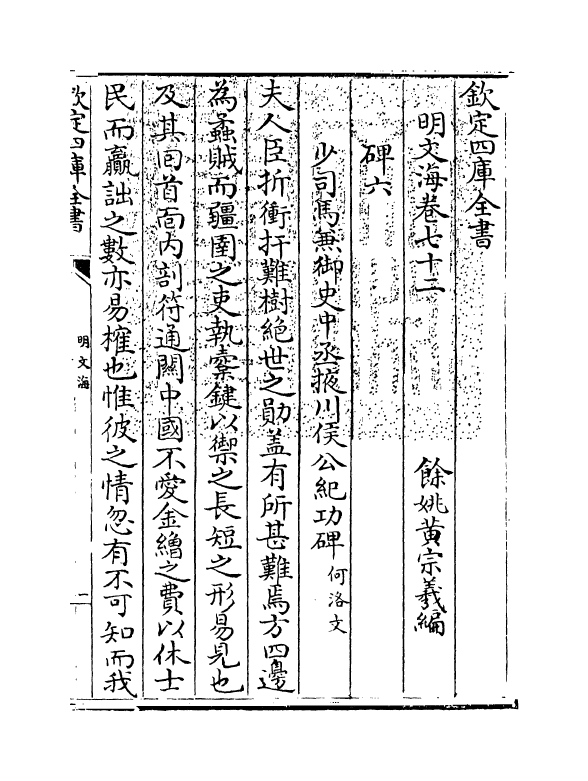 欽定四庫全書
明文海卷七十二
餘姚黄宗羲編
碑六
少司馬兼御史中丞掖川侯公紀功碑何洛文
夫人臣折衝扞難樹絶世之勛盖有所甚難焉方四邊
為蟊賊而疆圉之吏執櫜鍵以禦之長短之形易見也
及其囘首面内剖符通關中國不愛金繒之費以休士
民而贏詘之數亦易榷也惟彼之情忽有不可知而我
欽定四庫全書
明文海